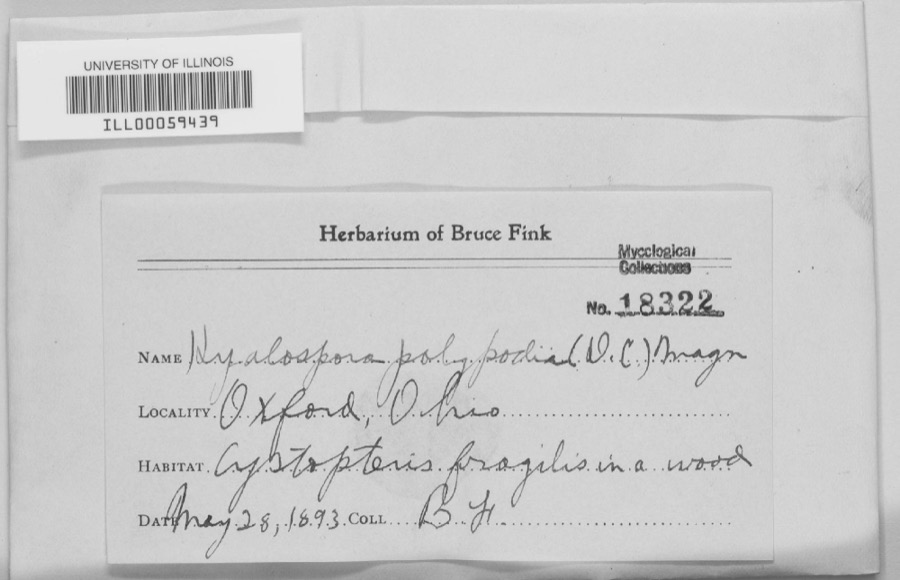 UNIVERSITY OF ILLINOIS
ILL00059439
Herbarium of Bruce Fink
Mycological
Collections
No. 18322
NAME Hyalospora polypodia (D.C.) Magn
LOCALITY Oxford, Ohio
HABITAT Cystopteris fragilis in a wood
DATE May 28, 1893 COLL B. F.